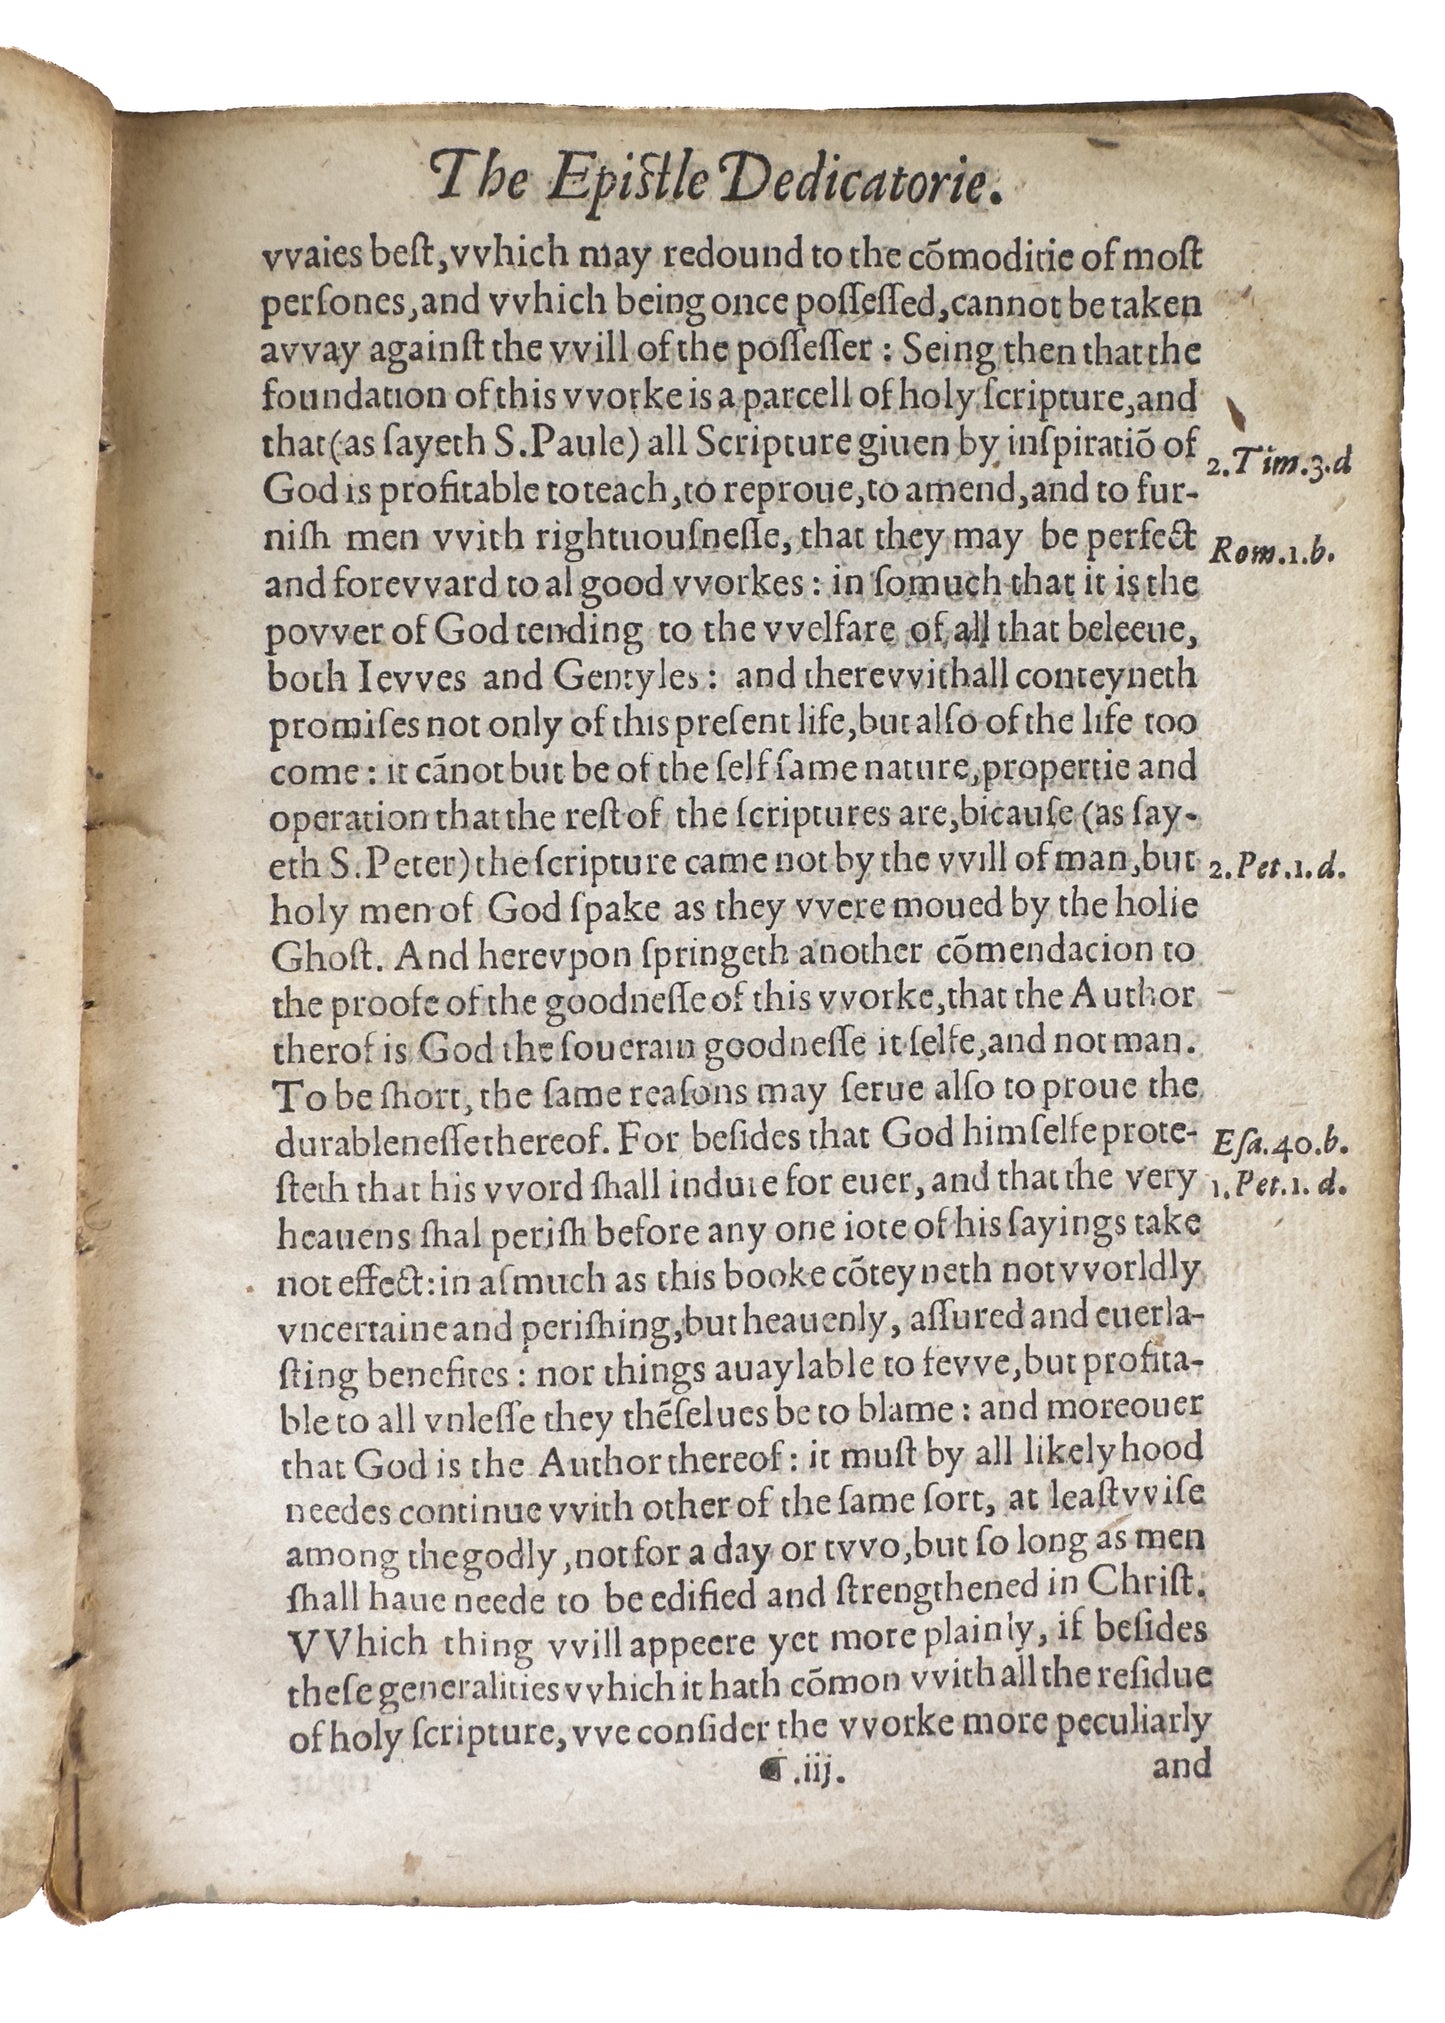 The Epiſtle Dedicatorie.
vvaies beſt, vvhich may redound to the cōmoditie of moſt
perſones, and vvhich being once poſſeſſed, cannot be taken
avvay againſt the vvill of the poſſeſſer : Seing then that the
foundation of this vvorke is a parcell of holy ſcripture, and
that (as ſayeth S. Paule) all Scripture giuen by inſpiratiō of
2.Tim.3.d
God is profitable to teach, to reproue, to amend, and to fur-
niſh men vvith rightuouſneſſe, that they may be perfect
Rom.1.b.
and forevvard to al good vvorkes : in ſomuch that it is the
povver of God tending to the vvelfare of all that beleeue,
both Ievves and Gentyles : and therevvithall conteyneth
promiſes not only of this preſent life, but alſo of the life too
come : it cānot but be of the ſelf ſame nature, propertie and
operation that the reſt of the ſcriptures are, bicauſe (as ſay-
eth S. Peter) the ſcripture came not by the vvill of man, but
2.Pet.1.d.
holy men of God ſpake as they vvere moued by the holie
Ghoſt. And herevpon ſpringeth another cōmendacion to
the proofe of the goodneſſe of this vvorke, that the Author
therof is God the ſouerain goodneſſe it ſelfe, and not man.
To be ſhort, the ſame reaſons may ſerue alſo to proue the
durableneſſe thereof. For beſides that God himſelfe prote-
Eſa.40.b.
ſteth that his vvord ſhall indure for euer, and that the very
1.Pet.1.d.
heauens ſhal periſh before any one iote of his ſayings take
not effect: in aſmuch as this booke cōteyneth not vvorldly
vncertaine and periſhing, but heauenly, aſſured and euerla-
ſting benefites : nor things auaylable to fevve, but profita-
ble to all vnleſſe they thēſelues be to blame : and moreouer
that God is the Author thereof : it muſt by all likelyhood
needes continue vvith other of the ſame ſort, at leaſtvviſe
among the godly, not for a day or tvvo, but ſo long as men
ſhall haue neede to be edified and ſtrengthened in Chriſt.
VVhich thing vvill appeere yet more plainly, if beſides
theſe generalities vvhich it hath cōmon vvith all the reſidue
of holy ſcripture, vve conſider the vvorke more peculiarly
.iij.
and